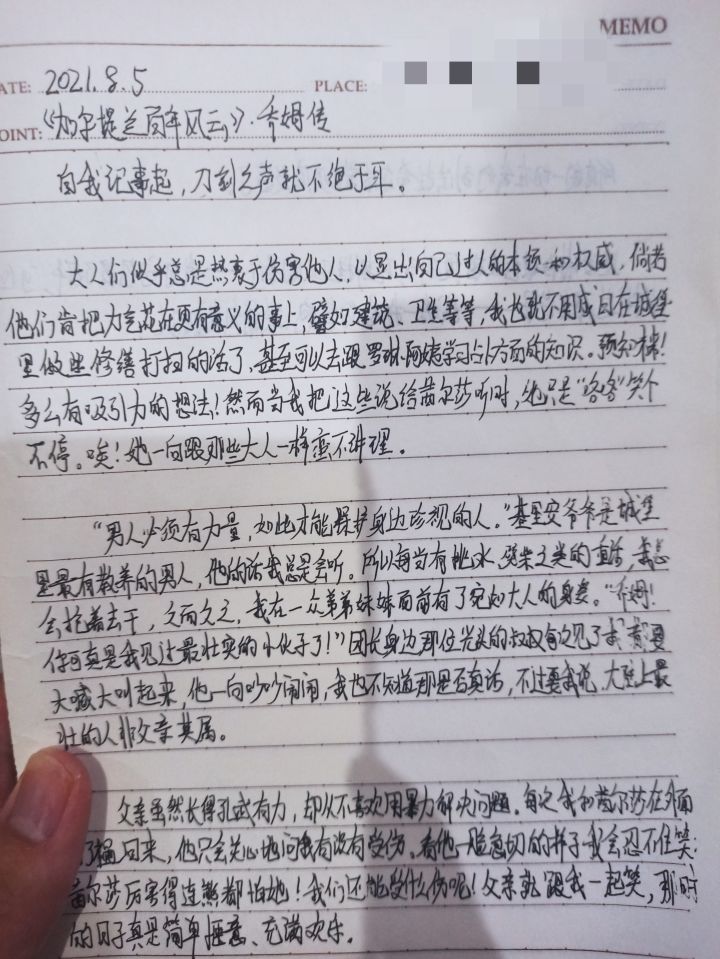 MEMO
ATE: 2021.8.5 PLACE:
OINT: 《加尔提兰百年风云》·乔姆传
自我记事起，刀剑之声就不绝于耳。
大人们似乎总是热衷于伤害他人，以显出自己过人的本领和权威，倘若
他们肯把力气花在更有意义的事上，譬如建筑、卫生等等，我也就不用成日在城堡
里做些修缮打扫的活了，甚至可以去跟罗琳阿姨学习占卜方面的知识。预知梦！
多么有吸引力的想法！然而当我把这些说给茜尔莎听时，她只是“咯咯”笑个
不停。唉！她一向跟那些大人一样蛮不讲理。
“男人必须有力量，如此才能保护身边珍视的人。”基里安爷爷是城堡
里最有教养的男人，他的话我总是会听。所以每当有挑水、劈柴之类的重活，我总
会抢着去干，久而久之，我在一众弟弟妹妹面前有了宛如大人的身姿。“乔姆！
你可真是我见过最壮实的小伙子了！”团长身边那位光头的叔叔每次见了我都要
大喊大叫起来，他一向吵吵闹闹，我也不知道那是否真话，不过要我说，大陆上最
壮的人非父亲莫属。
父亲虽然长得孔武有力，却从不喜欢用暴力解决问题。每次我和茜尔莎在外面
了祸回来，他只会关心地问我有没有受伤。看他一脸急切的样子我会忍不住笑：
茜尔莎厉害得连熊都怕她！我们还能受什么伤呢！父亲就跟我一起笑，那时
的日子真是简单惬意、充满欢乐。